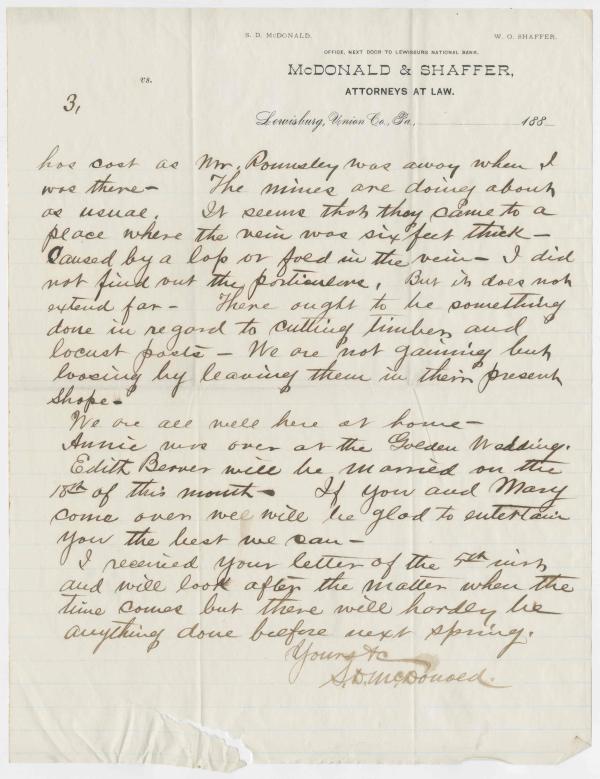 S. D. McDONALD. W. O. SHAFFER.
OFFICE, NEXT DOOR TO LEWISBURG NATIONAL BANK.
McDONALD & SHAFFER,
vs.
ATTORNEYS AT LAW.
3,
Lewisburg, Union Co., Pa., 188
has cost as Mr. Rounsley was away when I
was there – The mines are doing about
as usual. It seems that they came to a
place where the vein was six feet thick –
Caused by a lap or fold in the vein – I did
not find out the particulars. But it does not
extend far – There ought to be something
done in regard to cutting timber and
locust posts – We are not gaining but
loosing by leaving them in their present
shape –
We are all well here at home –
Annie was over at the Golden Wedding.
Edith Beaver will be married on the
18th of this month – If you and Mary
come over wee will be glad to entertain
you the best we can –
I received your letter of the 5th inst
and will look after the matter when the
time comes but there will hardly be
anything done beefore next spring.
Yours &c
S. D. McDonald.